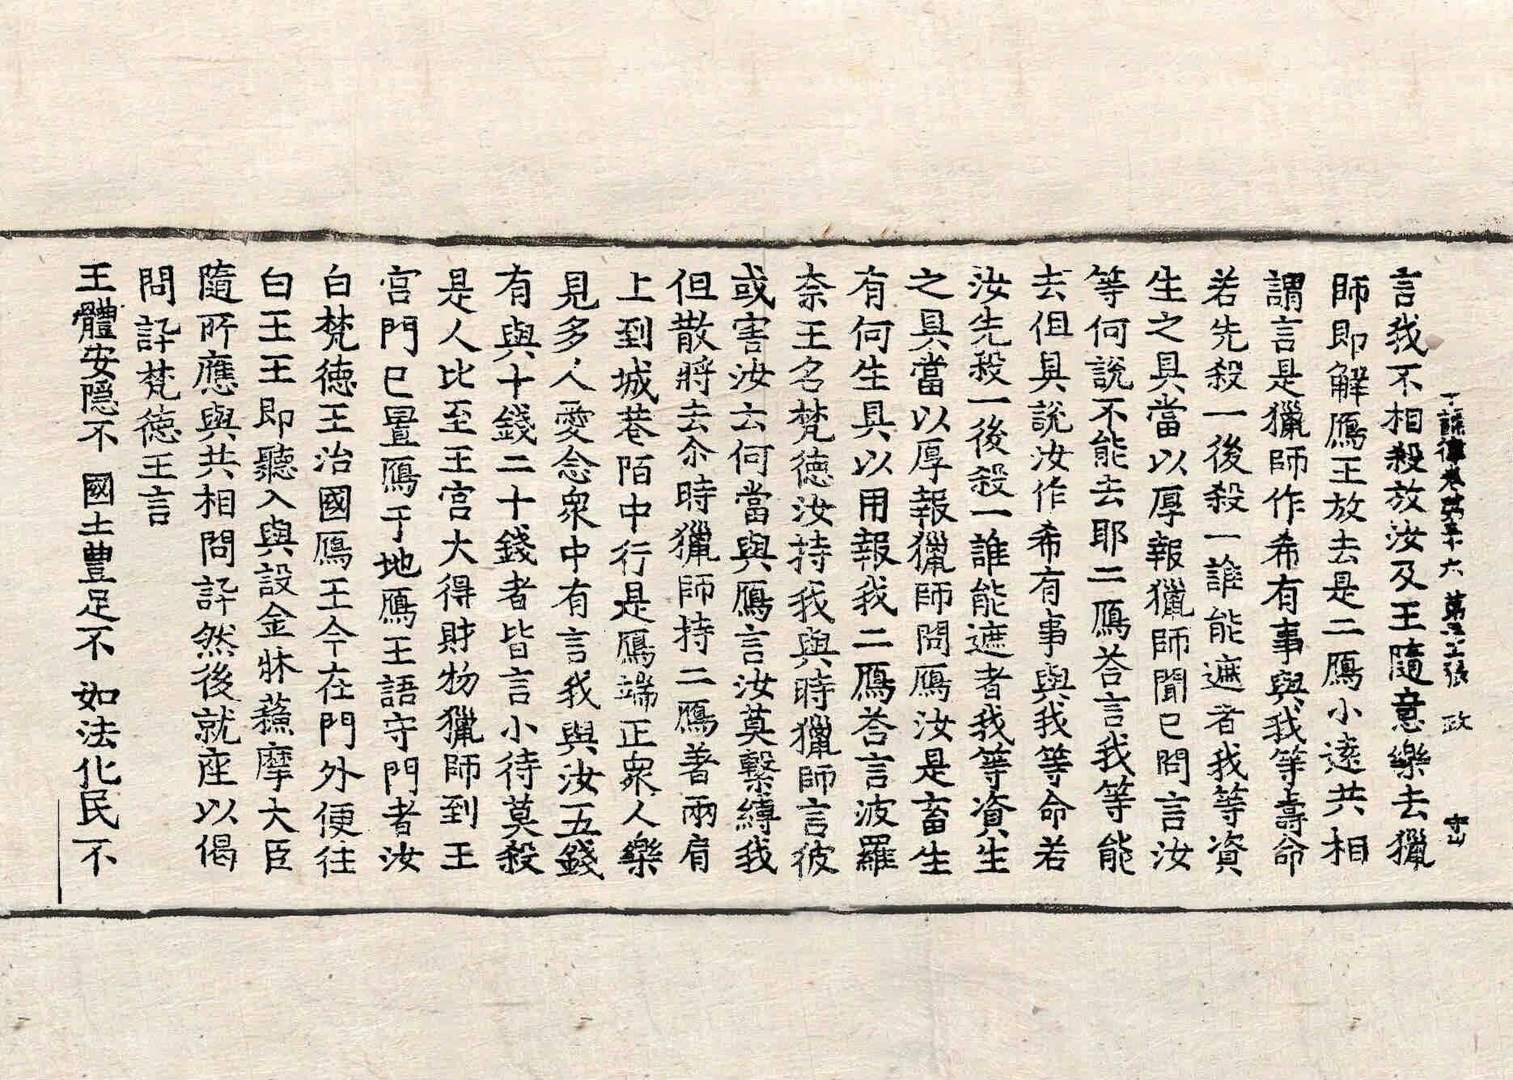 十誦律卷第三十六 第五張 政
言我不相殺放汝及王隨意樂去獵
師即解鴈王放去是二鴈小遠共相
謂言是獵師作希有事與我等壽命
若先殺一後殺一誰能遮者我等資
生之具當以厚報獵師聞已問言汝
等何說不能去耶二鴈荅言我等能
去但具說汝作希有事與我等命若
汝先殺一後殺一誰能遮者我等資生
之具當以厚報獵師問鴈汝是畜生
有何生具以用報我二鴈荅言波羅
柰王名梵德汝持我與時獵師言彼
或害汝云何當與鴈言汝莫繫縛我
但散將去尒時獵師持二鴈著兩肩
上到城巷陌中行是鴈端正衆人樂
見多人愛念衆中有言我與汝五錢
有與十錢二十錢者皆言小待莫殺
是人比至王宮大得財物獵師到王
宮門已置鴈于地鴈王語守門者汝
白梵德王治國鴈王今在門外便往
白王王即聽入與設金牀蘓摩大臣
隨所應與共相問訊然後就座以偈
問訊梵德王言
王體安隱不 國土豊足不 如法化民不